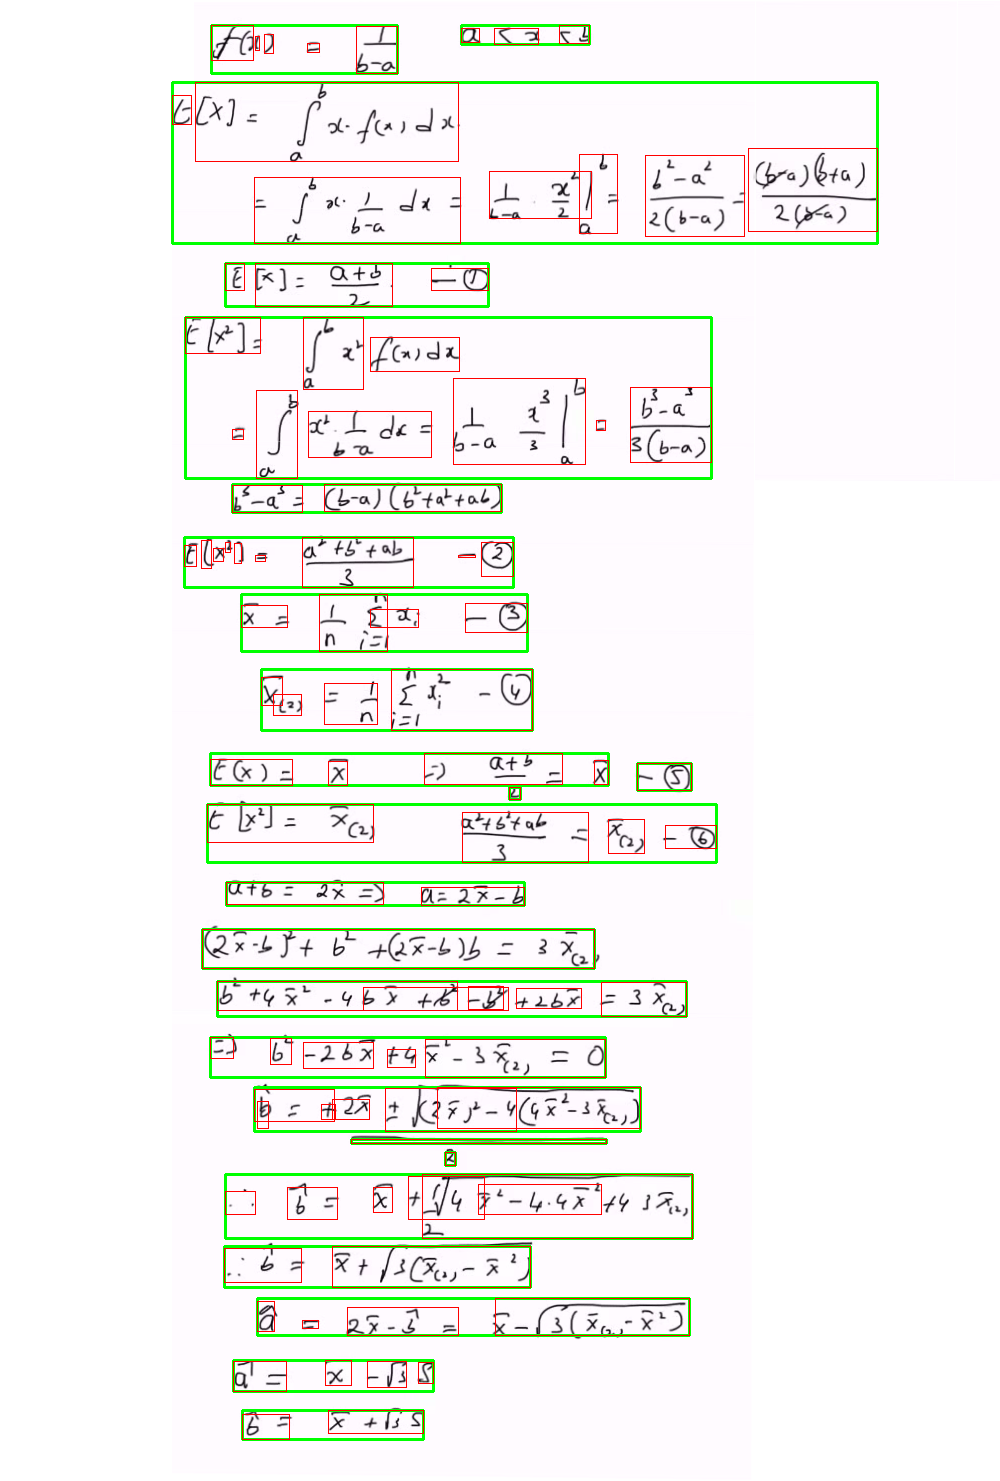 f(x) = 1/(b-a)    a < x < b
E[X] = ∫_a^b x · f(x) dx
= ∫_a^b x · 1/(b-a) dx = 1/(b-a) · x²/2 |_a^b = (b²-a²)/(2(b-a)) = (b-a)(b+a)/(2(b-a))
E[X] = (a+b)/2 — ①
E[X²] = ∫_a^b x² f(x) dx
= ∫_a^b x² · 1/(b-a) dx = 1/(b-a) x³/3 |_a^b = (b³-a³)/(3(b-a))
b³-a³ = (b-a)(b²+a²+ab)
E(x²) = (a²+b²+ab)/3 — ②
x̄ = 1/n Σ_{i=1}^n x_i — ③
x̄_(2) = 1/n Σ_{i=1}^n x_i² — ④
E(x) = x̄ ⇒ (a+b)/2 = x̄ — ⑤
E[x²] = x̄_(2)    (a²+b²+ab)/3 = x̄_(2) — ⑥
a+b = 2x̄ ⇒ a = 2x̄-b
(2x̄-b)² + b² + (2x̄-b)b = 3x̄_(2)
b² + 4x̄² - 4bx̄ + b² - b² + 2bx̄ = 3x̄_(2)
⇒ b² - 2bx̄ + 4x̄² - 3x̄_(2) = 0
b̂ = +2x̄ ± √((2x̄)² - 4(4x̄²-3x̄_(2))) / 2
∴ b̂ = x̄ + 1/2 √(4x̄² - 4·4x̄² + 4 3x̄_(2))
∴ b̂ = x̄ + √(3(x̄_(2) - x̄²))
â = 2x̄ - b̂ = x̄ - √(3(x̄_(2) - x̄²))
â = x̄ - √3 S
b̂ = x̄ + √3 S